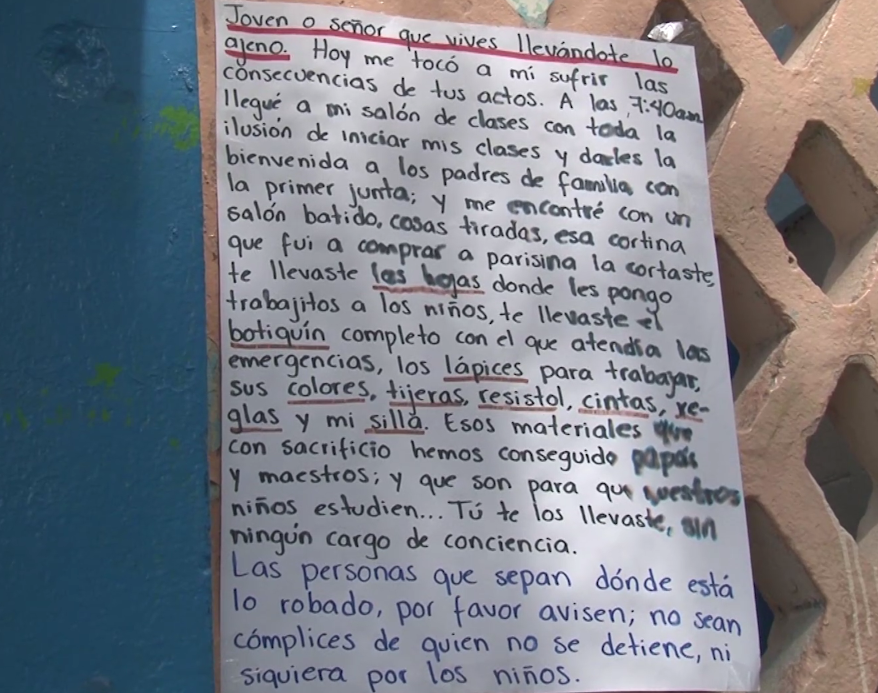 Joven o señor que vives llevándote lo
ajeno. Hoy me tocó a mí sufrir las
consecuencias de tus actos. A las 7:40am
llegué a mi salón de clases con toda la
ilusión de iniciar mis clases y darles la
bienvenida a los padres de familia con
la primer junta; y me encontré con un
salón batido, cosas tiradas, esa cortina
que fui a comprar a parisina la cortaste,
te llevaste las hojas donde les pongo
trabajitos a los niños, te llevaste el
botiquín completo con el que atendía las
emergencias, los lápices para trabajar,
sus colores, tijeras, resistol, cintas, re-
glas y mi silla. Esos materiales que
con sacrificio hemos conseguido papás
y maestros; y que son para que nuestros
niños estudien... Tú te los llevaste, sin
ningún cargo de conciencia.
Las personas que sepan dónde está
lo robado, por favor avisen; no sean
cómplices de quien no se detiene, ni
siquiera por los niños.